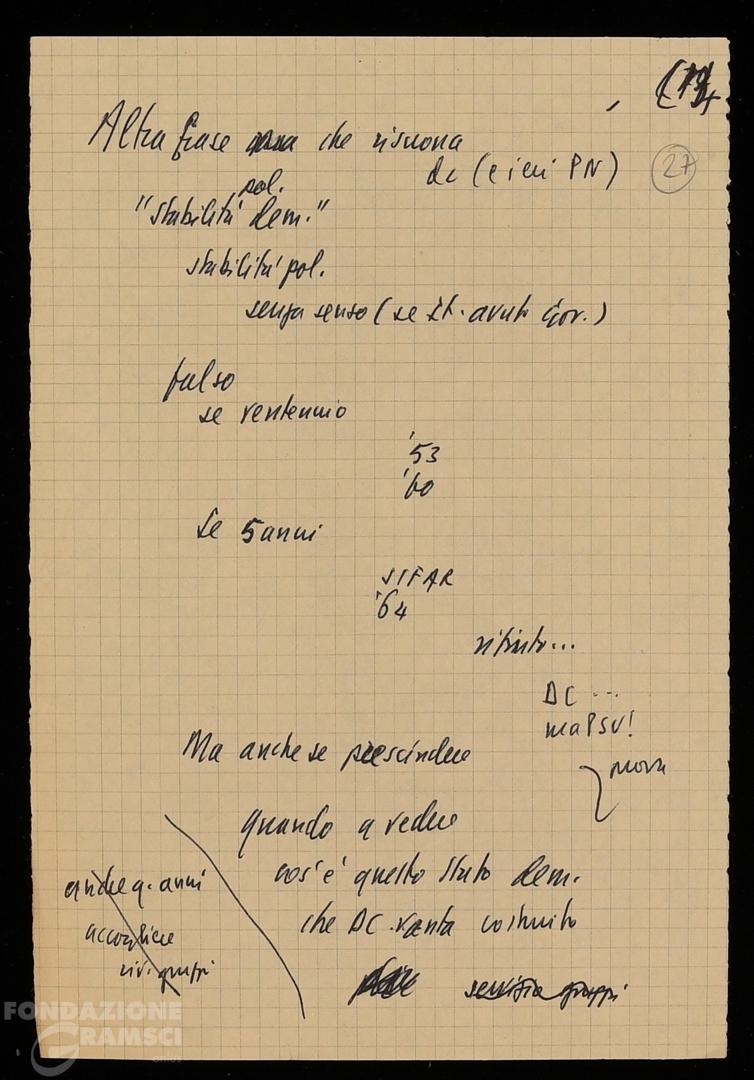 27
Altra frase che risuona
dc (e ieri PN)
pol.
"stabilità dem."
stabilità pol.
senza senso (se st. avuto Gov.)
falso
se ventennio
'53
'60
se 5 anni
SIFAR
'64
DC ...
ma PSU!
Ma anche se prescindere
quando a vedere
cos'è questo Stato dem.
che DC vanta costruito
anche q. anni
accogliere
riv. gruppi
servizio gruppi
FONDAZIONE
GRAMSCI
onlus